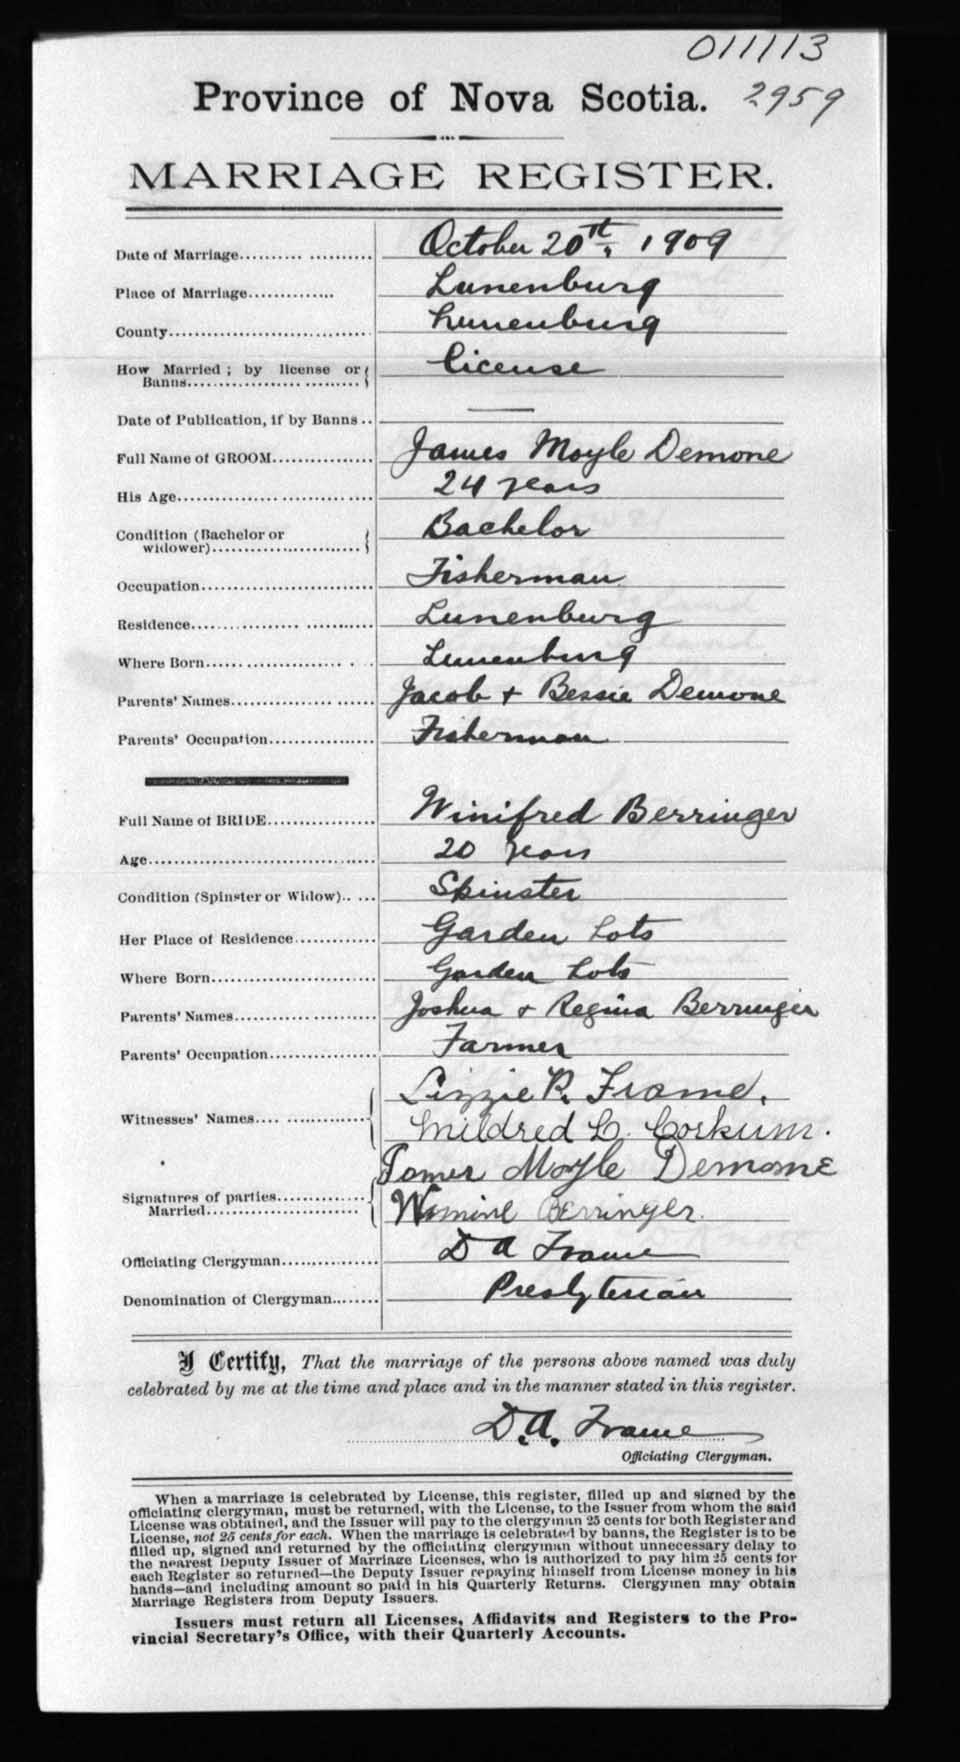 011113
Province of Nova Scotia. 2959
MARRIAGE REGISTER.
Date of Marriage.................... October 20th, 1909
Place of Marriage.............. Lunenburg
County............................. Lunenburg
How Married; by license or License
Banns............................
Date of Publication, if by Banns .. —
Full Name of GROOM................ James Moyle Demone
His Age............................ 24 years
Condition (Bachelor or Bachelor
widower)........................
Occupation......................... Fisherman
Residence.......................... Lunenburg
Where Born......................... Lunenburg
Parents' Names..................... Jacob + Bessie Demone
Parents' Occupation................ Fisherman
Full Name of BRIDE................ Winifred Berringer
Age................................ 20 years
Condition (Spinster or Widow)..... Spinster
Her Place of Residence............ Garden Lots
Where Born......................... Garden Lots
Parents' Names..................... Joshua + Regina Berringer
Parents' Occupation................ Farmer
Lizzie R. Frame.
Witnesses' Names.................. Mildred L. Corkum.
Moyle Demone
Signatures of parties.............
Married........................... Berringer.
Officiating Clergyman............. D A Frame
Denomination of Clergyman........ Presbyterian
I Certify, That the marriage of the persons above named was duly
celebrated by me at the time and place and in the manner stated in this register.
D.A. Frame
Officiating Clergyman.
When a marriage is celebrated by License, this register, filled up and signed by the
officiating clergyman, must be returned, with the License, to the Issuer from whom the said
License was obtained, and the Issuer will pay to the clergyman 25 cents for both Register and
License, not 25 cents for each. When the marriage is celebrated by banns, the Register is to be
filled up, signed and returned by the officiating clergyman without unnecessary delay to
the nearest Deputy Issuer of Marriage Licenses, who is authorized to pay him 25 cents for
each Register so returned—the Deputy Issuer repaying himself from License money in his
hands—and including amount so paid in his Quarterly Returns. Clergymen may obtain
Marriage Registers from Deputy Issuers.
Issuers must return all Licenses, Affidavits and Registers to the Pro-
vincial Secretary's Office, with their Quarterly Accounts.